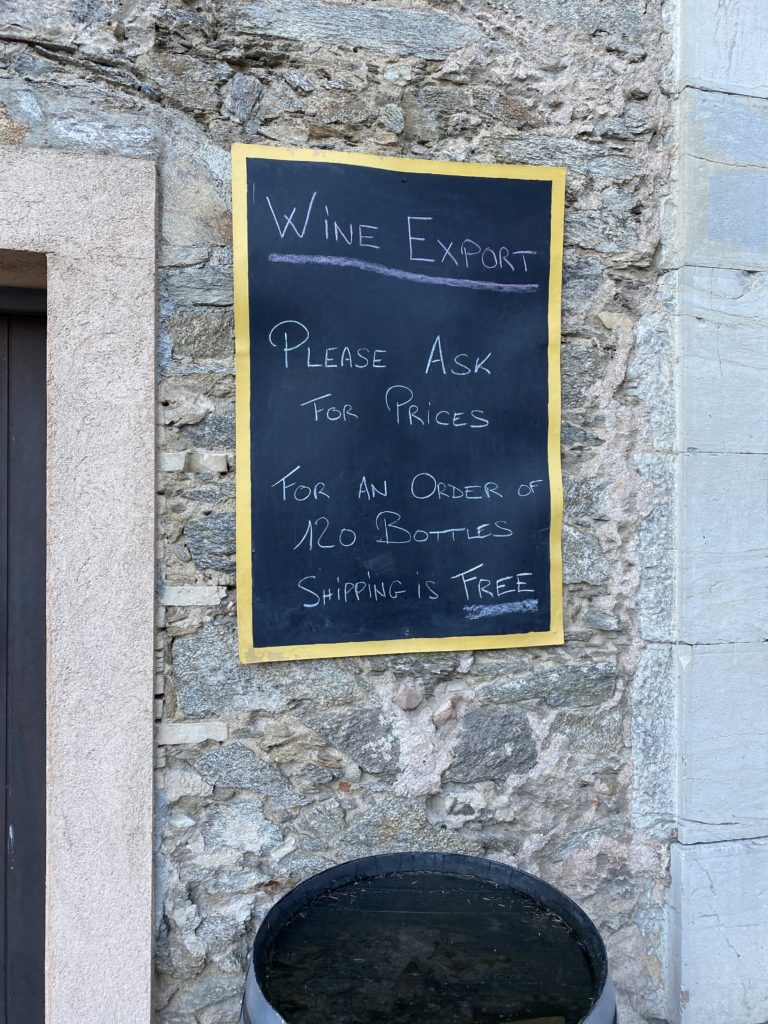 Wine Export
Please Ask
For Prices
For an Order of
120 Bottles
Shipping is Free